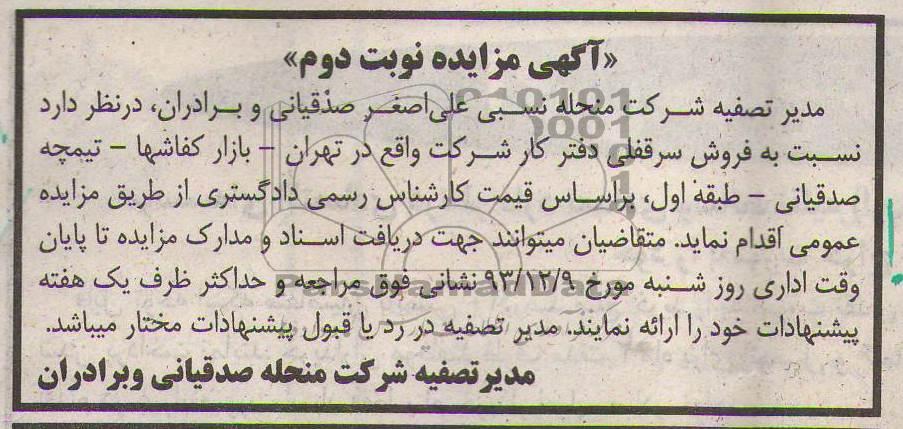 «آگهی مزایده نوبت دوم»
مدیر تصفیه شرکت منحله نسبی علی‌اصغر صدّقیانی و برادران، درنظر دارد
نسبت به فروش سرقفلی دفتر کار شرکت واقع در تهران - بازار کفاشها - تیمچه
صدقیانی - طبقه اول، براساس قیمت کارشناس رسمی دادگستری از طریق مزایده
عمومی اقدام نماید. متقاضیان میتوانند جهت دریافت اسناد و مدارک مزایده تا پایان
وقت اداری روز شنبه مورخ ۹۳/۱۲/۹ نشانی فوق مراجعه و حداکثر ظرف یک هفته
پیشنهادات خود را ارائه نمایند. مدیر تصفیه در رد یا قبول پیشنهادات مختار میباشد.
مدیرتصفیه شرکت منحله صدقیانی وبرادران